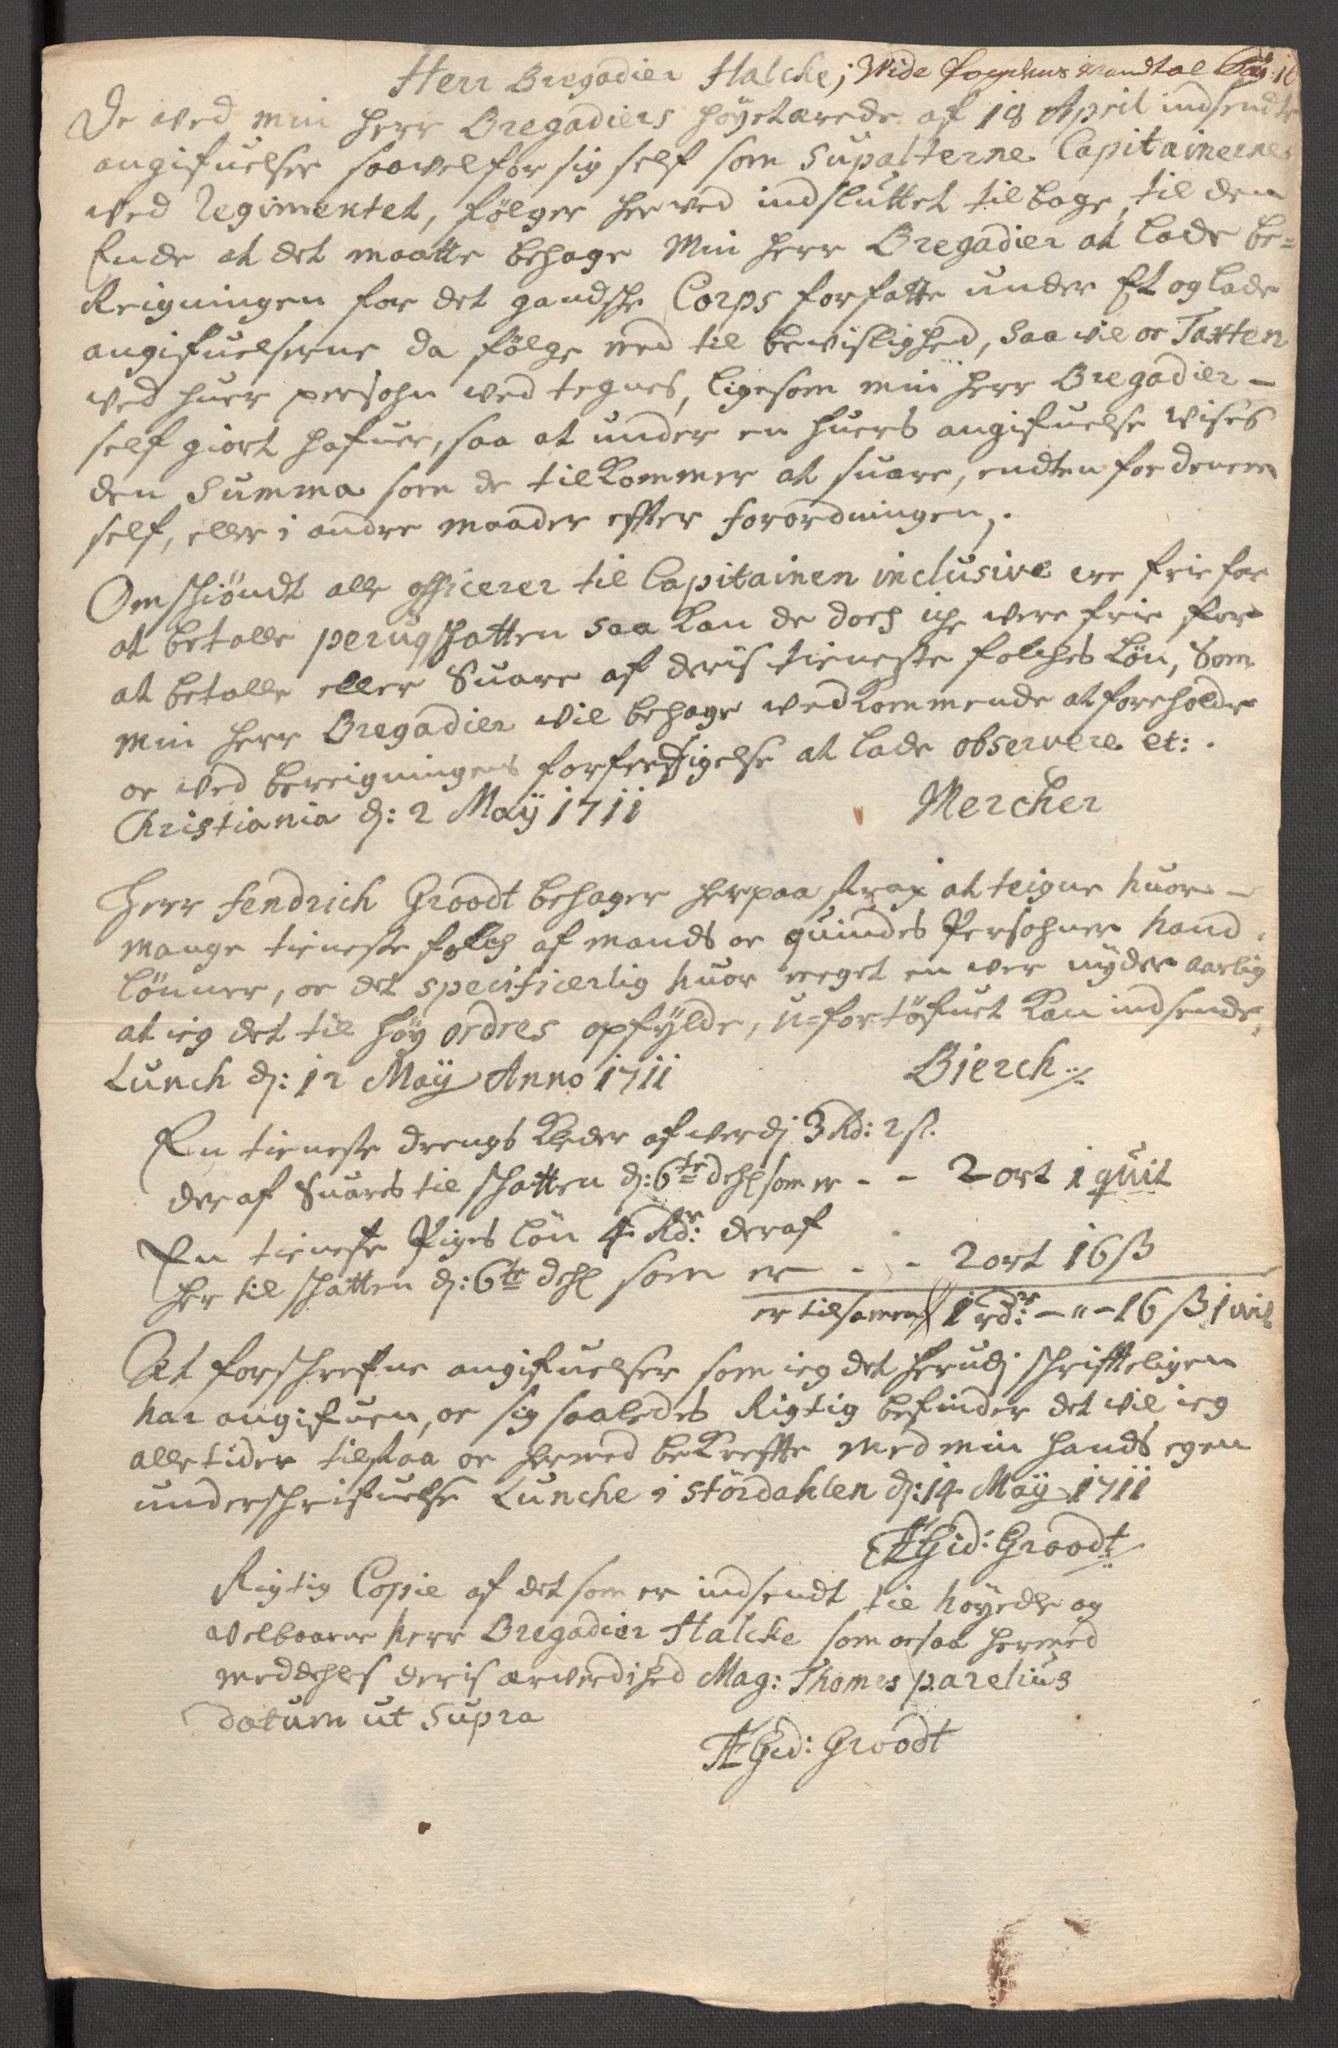 Herr Bregadier Halcke; Vide Mandtal
De med min Herr Bregadiers höystærede af 18 April indsendte
angifuelser saavel for sig self som Supalterne Capitainerne
ved Regimentet, følger herved indsluttet tilbage, til den
Ende at det maatte behage Min Herr Bregadier at lade be=
Reigningen for det gandsche Corps forfatte under Et og lade
angifuelserne da følge med til bevislighed, saa vil oc Taxten
ved huer persohn ved tegnes, ligesom min Herr Bregadier –
self giort hafuer, saa at under en huers angifuelse vises
den Summa som de tilkommer at suare, endten for dennem
self, eller i andre maader efter forordningen.
Omschiöndt alle officerer til Capitainen inclusive ere frie for
at betalle perugschatten saa kan de doch iche were frie for
at betalle eller Suare af deris tieneste folches Løn, Som
min Herr Bregadier vil behage vedkommende at foreholde
oc ved bereigningens forferdigelse at lade observere et: .
Christiania d: 2 Maÿ 1711 Mercker
Herr fendrich Groodt behager herpaa strax at teigne huor –
mange tieneste folch af mands oc quindes Persohner hand
lønner, oc det specificerlig huor meget en wer nyder aarlig
at ieg det til høy ordres opfylde, u=fortøfuet kan indsende,
Lunch d: 12 Maÿ Anno 1711 Bierch
En tieneste drengs Kleder af werdj 3 Rd: 2 ß.
deraf Suares til schatten d: 6te dehl som er - - 2 ort 1 quit
En tieneste Piges løn 4 Rdr: deraf
her til schatten d: 6te dehl som er - - 2 ort 16 ß
er tilsamen 1 rdr: – " – 16 ß 1 wit
At forschrefne angifuelser som ieg det herudj schriftteligen
har angifuen, oc sig saaledes Rigtig befinder det vil ieg
alletider tilstaa oc hermed bekreffte med min hands egen
underschrifuelse Lunche i stördahlen d: 14 Maÿ 1711
Gid: Groodt
Rigtig Copie af det som er indsendt til höyedle og
velbaarne Herr Bregadier Halcke som ocsaa hermed
meddehles deris ærverdihed Mag: Thomes parelius
datum ut Supra
Gid: Groodt